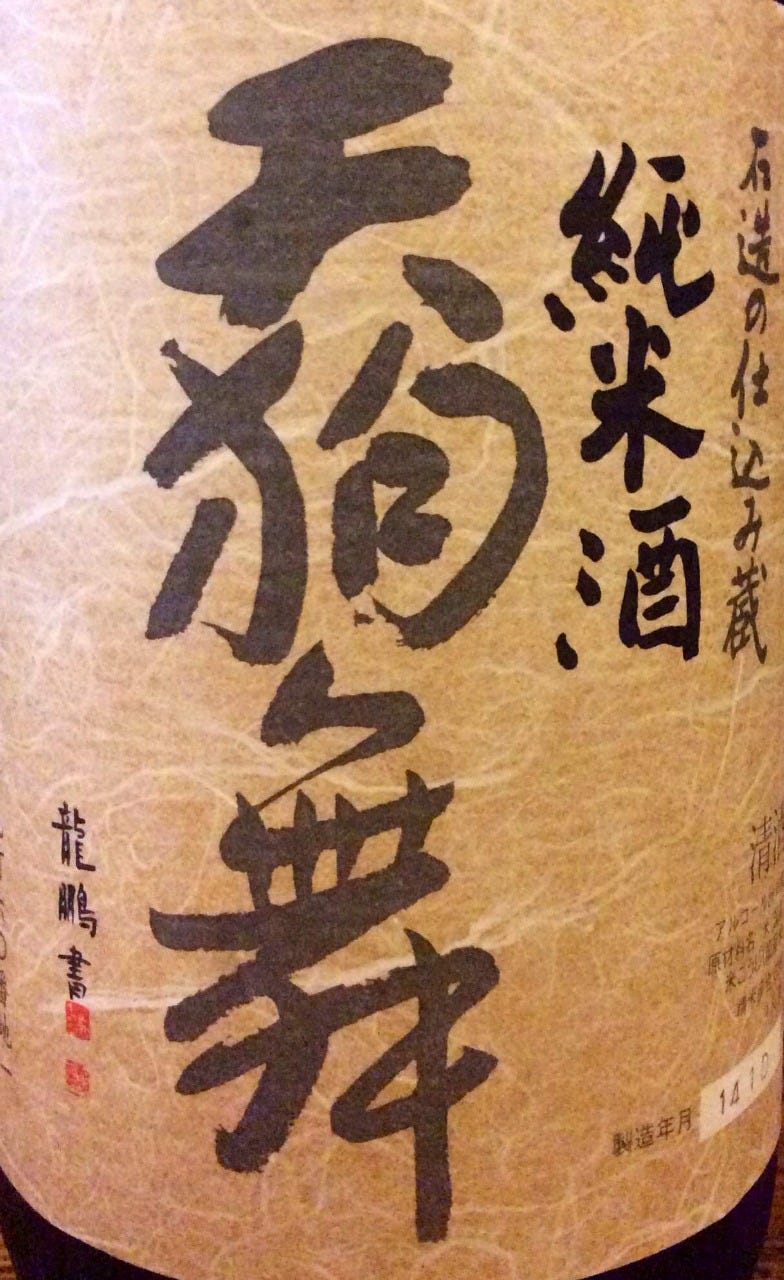 石造の仕込み蔵
純米酒
天狗舞
龍鵬書
清
アルコール
原材料名 米
米こうじ
製造年月 1410